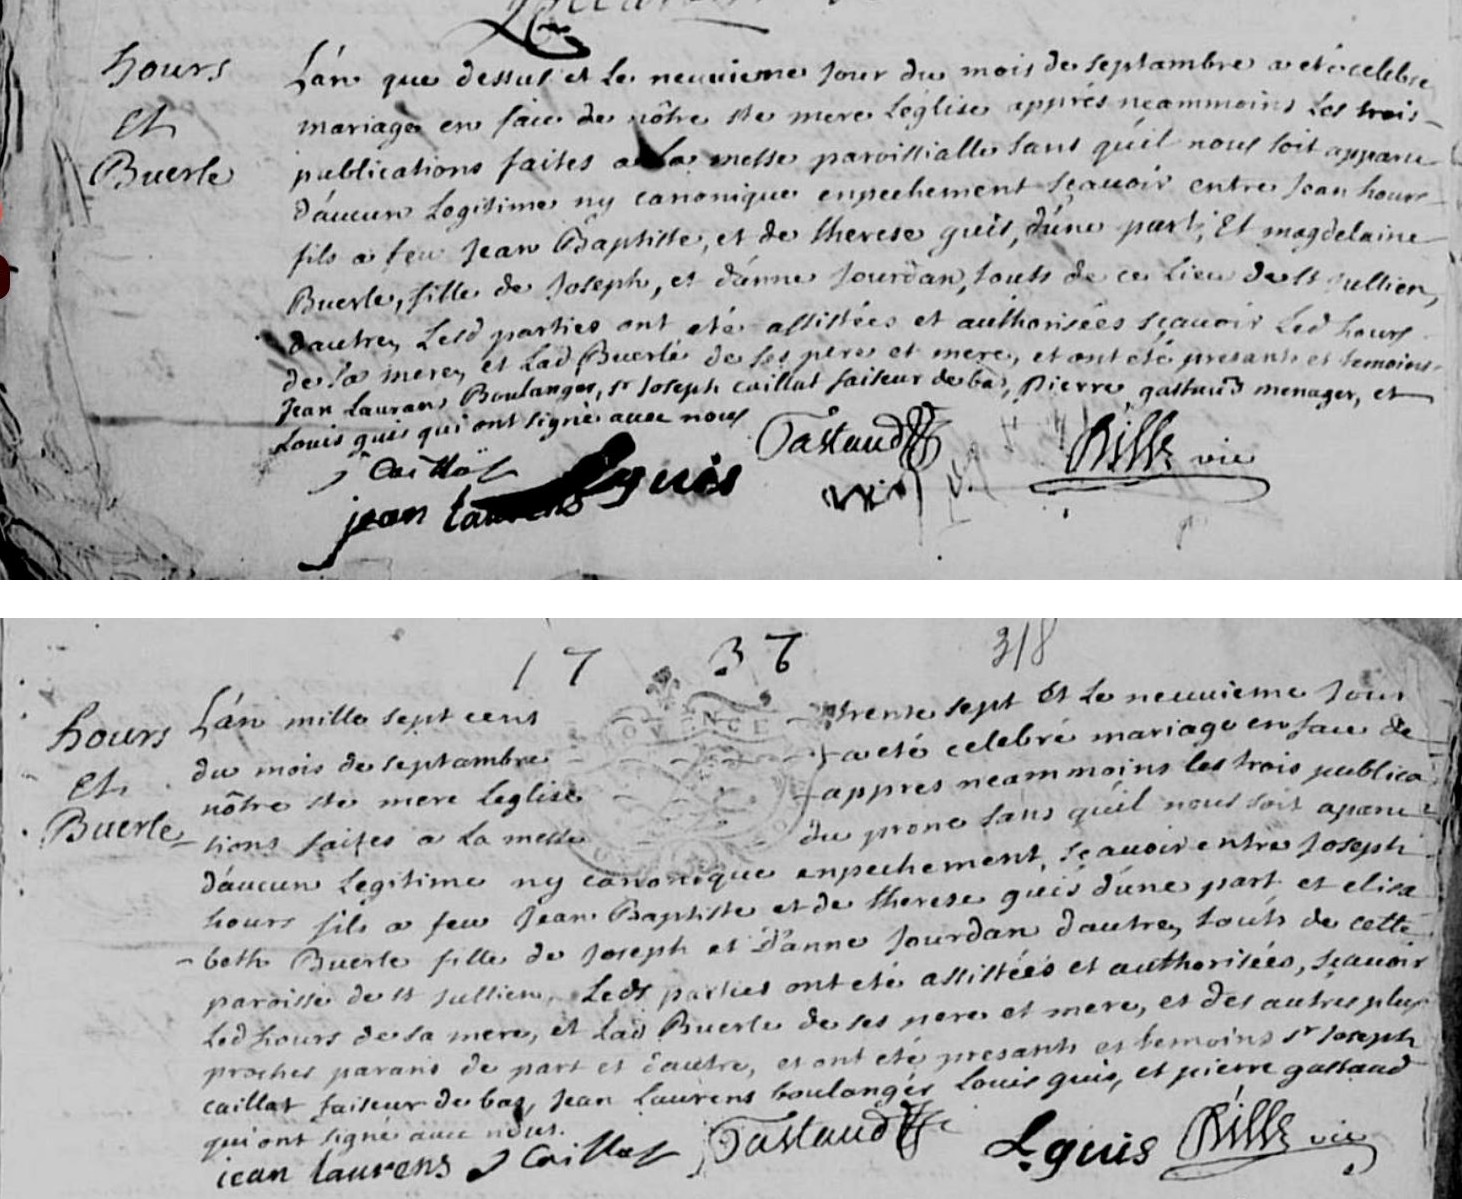 hours
Et
Buerle
L'án que dessus et Le neuuieme Jour du mois de septambre a eté celebré
mariage en face de nôtre ste mere Léglise apprés neammoins Les trois
publications faites a La messe paroissialle sans qu'il nous soit apparu
d'aucun Legitime ny canonique enpechement sçauoir entre Jean hours
fils a feu Jean Baptiste, et de therese guis, d'une part, Et magdelaine
Buerle, fille de Joseph, et d'anne Jourdan, touts de ce Lieu de st Jullien,
dautre, Lesd parties ont eté assistées et authorisées sçauoir Led hours
de sa mere, et Lad Buerle de ses pere et mere, et ont eté presants et temoins
Jean Laurans Boulanger, sr Joseph caillat faiseur de bas, Pierre gastaud menager, et
Louis guis qui ont signé auec nous
J Caillat
Gastaud
Rille vic
Lguis
jean laurens
17 37
318
hours
Et
Buerle
L'án mille sept cent trente sept Et Le neuuieme Jour
du mois de septambre a eté celebré mariage en face de
nôtre ste mere Leglise appres neammoins les trois publica
tions faites a La messe du prone sans qu'il nous soit aparu
d'aucun Legitime ny canonique enpechement, sçauoir entre Joseph
hours fils a feu Jean Baptiste et de therese guis d'une part et elisa
beth Buerle fille de Joseph et D'anne Jourdan dautre, touts de cette
paroisse de st Jullien, Lesds parties ont eté assistées et authorisées, sçauoir
Led hours de sa mere, et Lad Buerle de ses pere et mere, et des autres plus
proches parans de part et d'autre, et ont eté presants et temoins sr Joseph
caillat faiseur de bas, Jean Laurens boulanger Louis guis, et pierre gastaud
qui ont signé auec nous.
jean laurens J Caillat Gastaud Lguis Rille vic